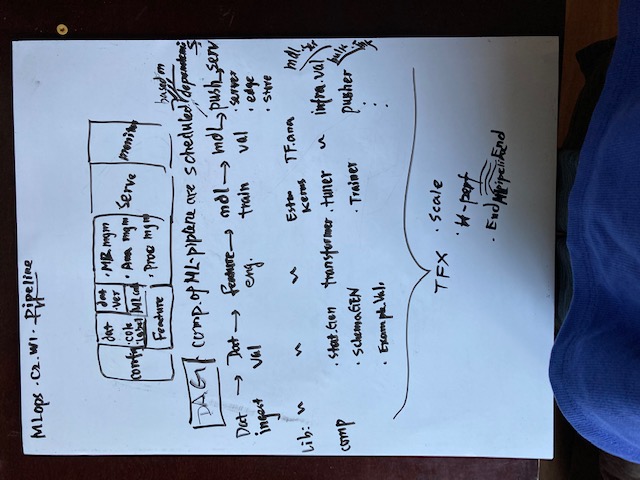 MLops . C2. W1 . pipeline
config
dat
. colc
. label
dat
. ver
ML code
Feature
. MR. mgm
. Ana mgm
. Proc mgm
Serve
monitor
DAG comp. of ML-pipline are scheduled based on dependencis
Dat ingest → Dat val → feature eng. → mdl train → mdl val → push → serv
. server
. edge
. store
Lib: " " " Estm Keras TF.ana
comp
. stat.Gen
. SchemaGEN
. Example.Val.
transformer
. tuner
. Trainer
"
infra.val
pusher
mdl
TFX
. scale
. H-perf
. End pipeline End